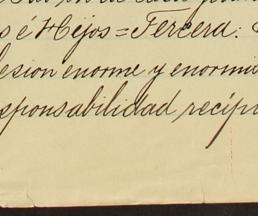 s é Hijos = Tercera:
esion enorme y enormi
sponsabilidad recíp